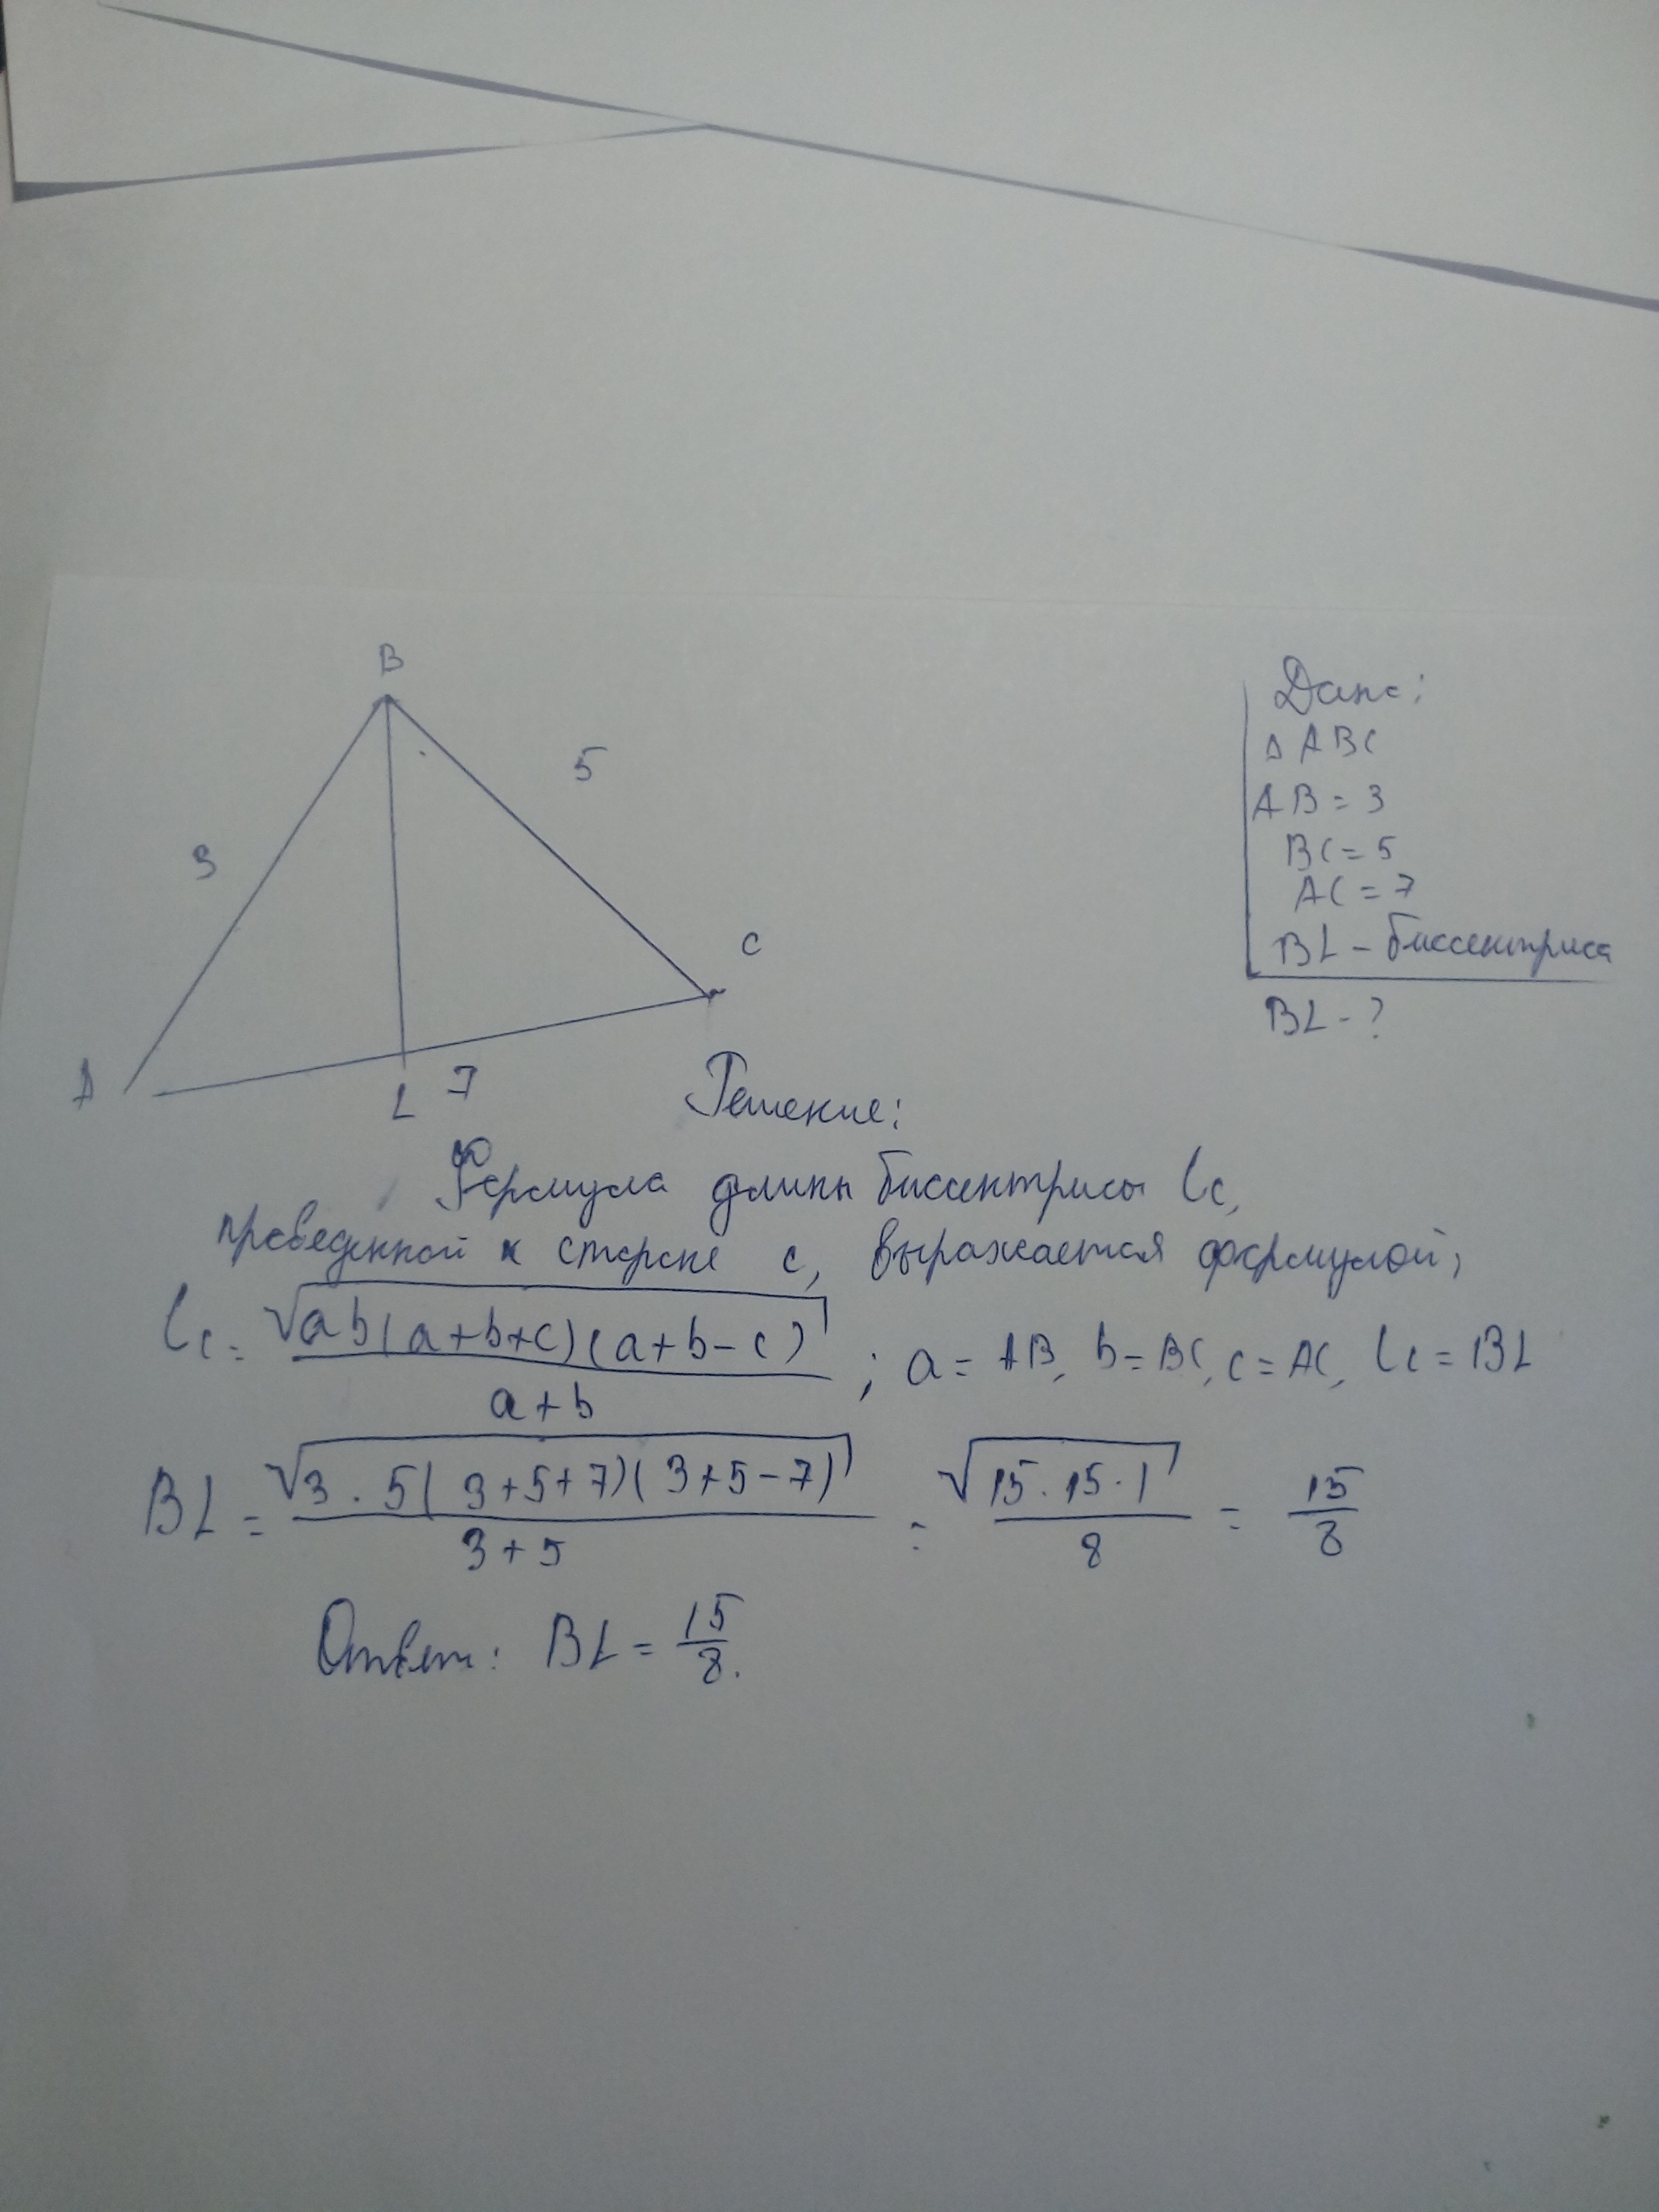 B
5
3
C
A
L 7
Дано:
Δ ABC
AB = 3
BC = 5
AC = 7
BL - биссектриса
BL - ?
Решение:
Формула длины биссектрисы lc,
проведенной к стороне c, выражается формулой;
lc = √ab(a+b+c)(a+b-c) / a+b ; a = AB, b = BC, c = AC, lc = BL
BL = √3·5(3+5+7)(3+5-7) / 3+5 = √15·15·1 / 8 = 15/8
Ответ: BL = 15/8.